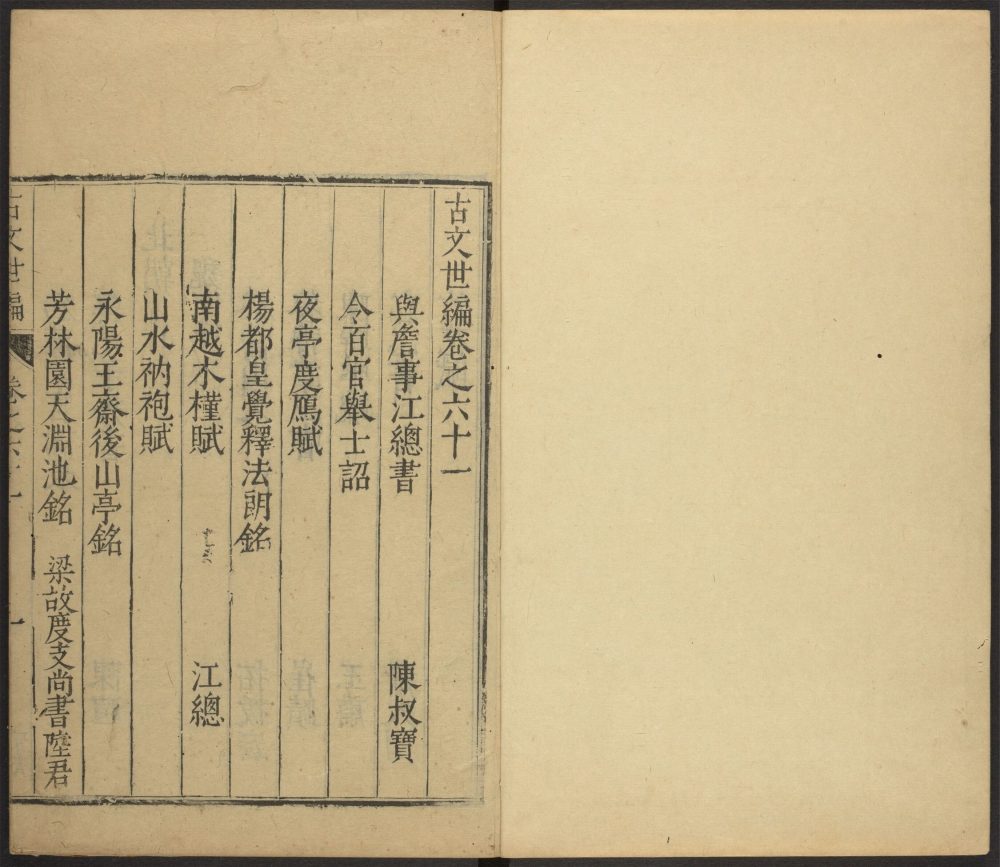 古文世編卷之六十一
與詹事江總書 陳叔寶
今百官舉士詔
夜亭度鴈賦
楊都皇覺釋法朗銘
南越木槿賦 江總
山水衲袍賦
永陽王齋後山亭銘
芳林園天淵池銘 梁故度支尚書陸君
古文世編 卷之六十一 一